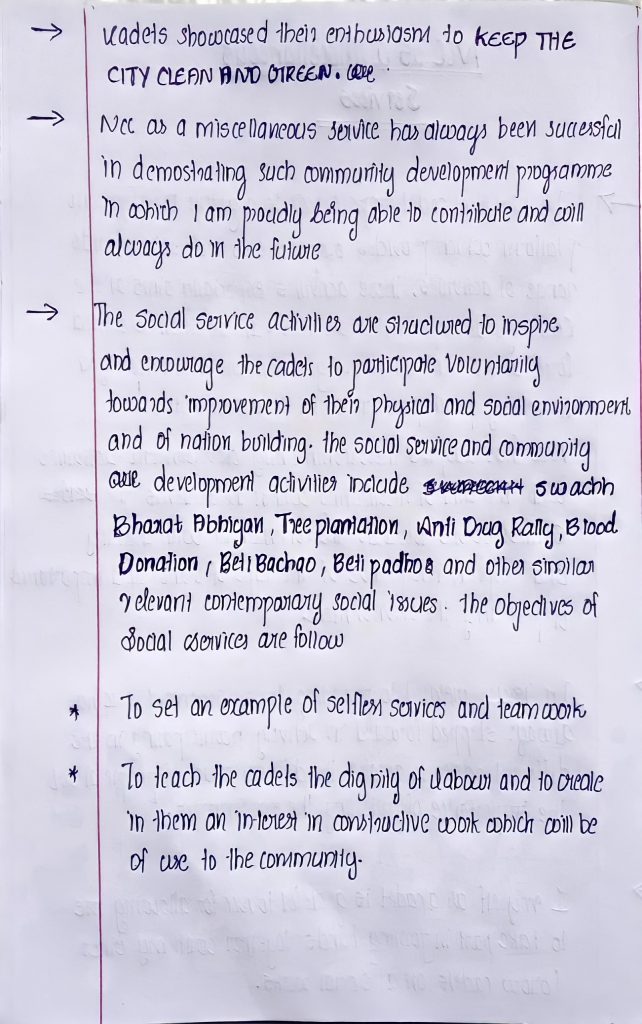 → Kadets showcased their enthusiasm to KEEP THE
CITY CLEAN AND GREEN. We
→ Ncc as a miscellaneous service has always been successful
in demostrating such community development programme
in which I am proudly being able to contribute and will
always do in the future
→ The social service activities are structured to inspire
and encourage the cadets to participate voluntarily
towards improvement of their physical and social environment
and of nation building. the social service and community
development activities include swachh
Bharat Abhigan, Tree plantation, Anti Drug Rally, Blood
Donation, Beti Bachao, Beti padhoa and other similar
relevant contemporary social issues. The objectives of
social services are follow
* To set an example of selfless services and team work
* To teach the cadets the dignity of labour and to create
in them an interest in constructive work which will be
of use to the community.